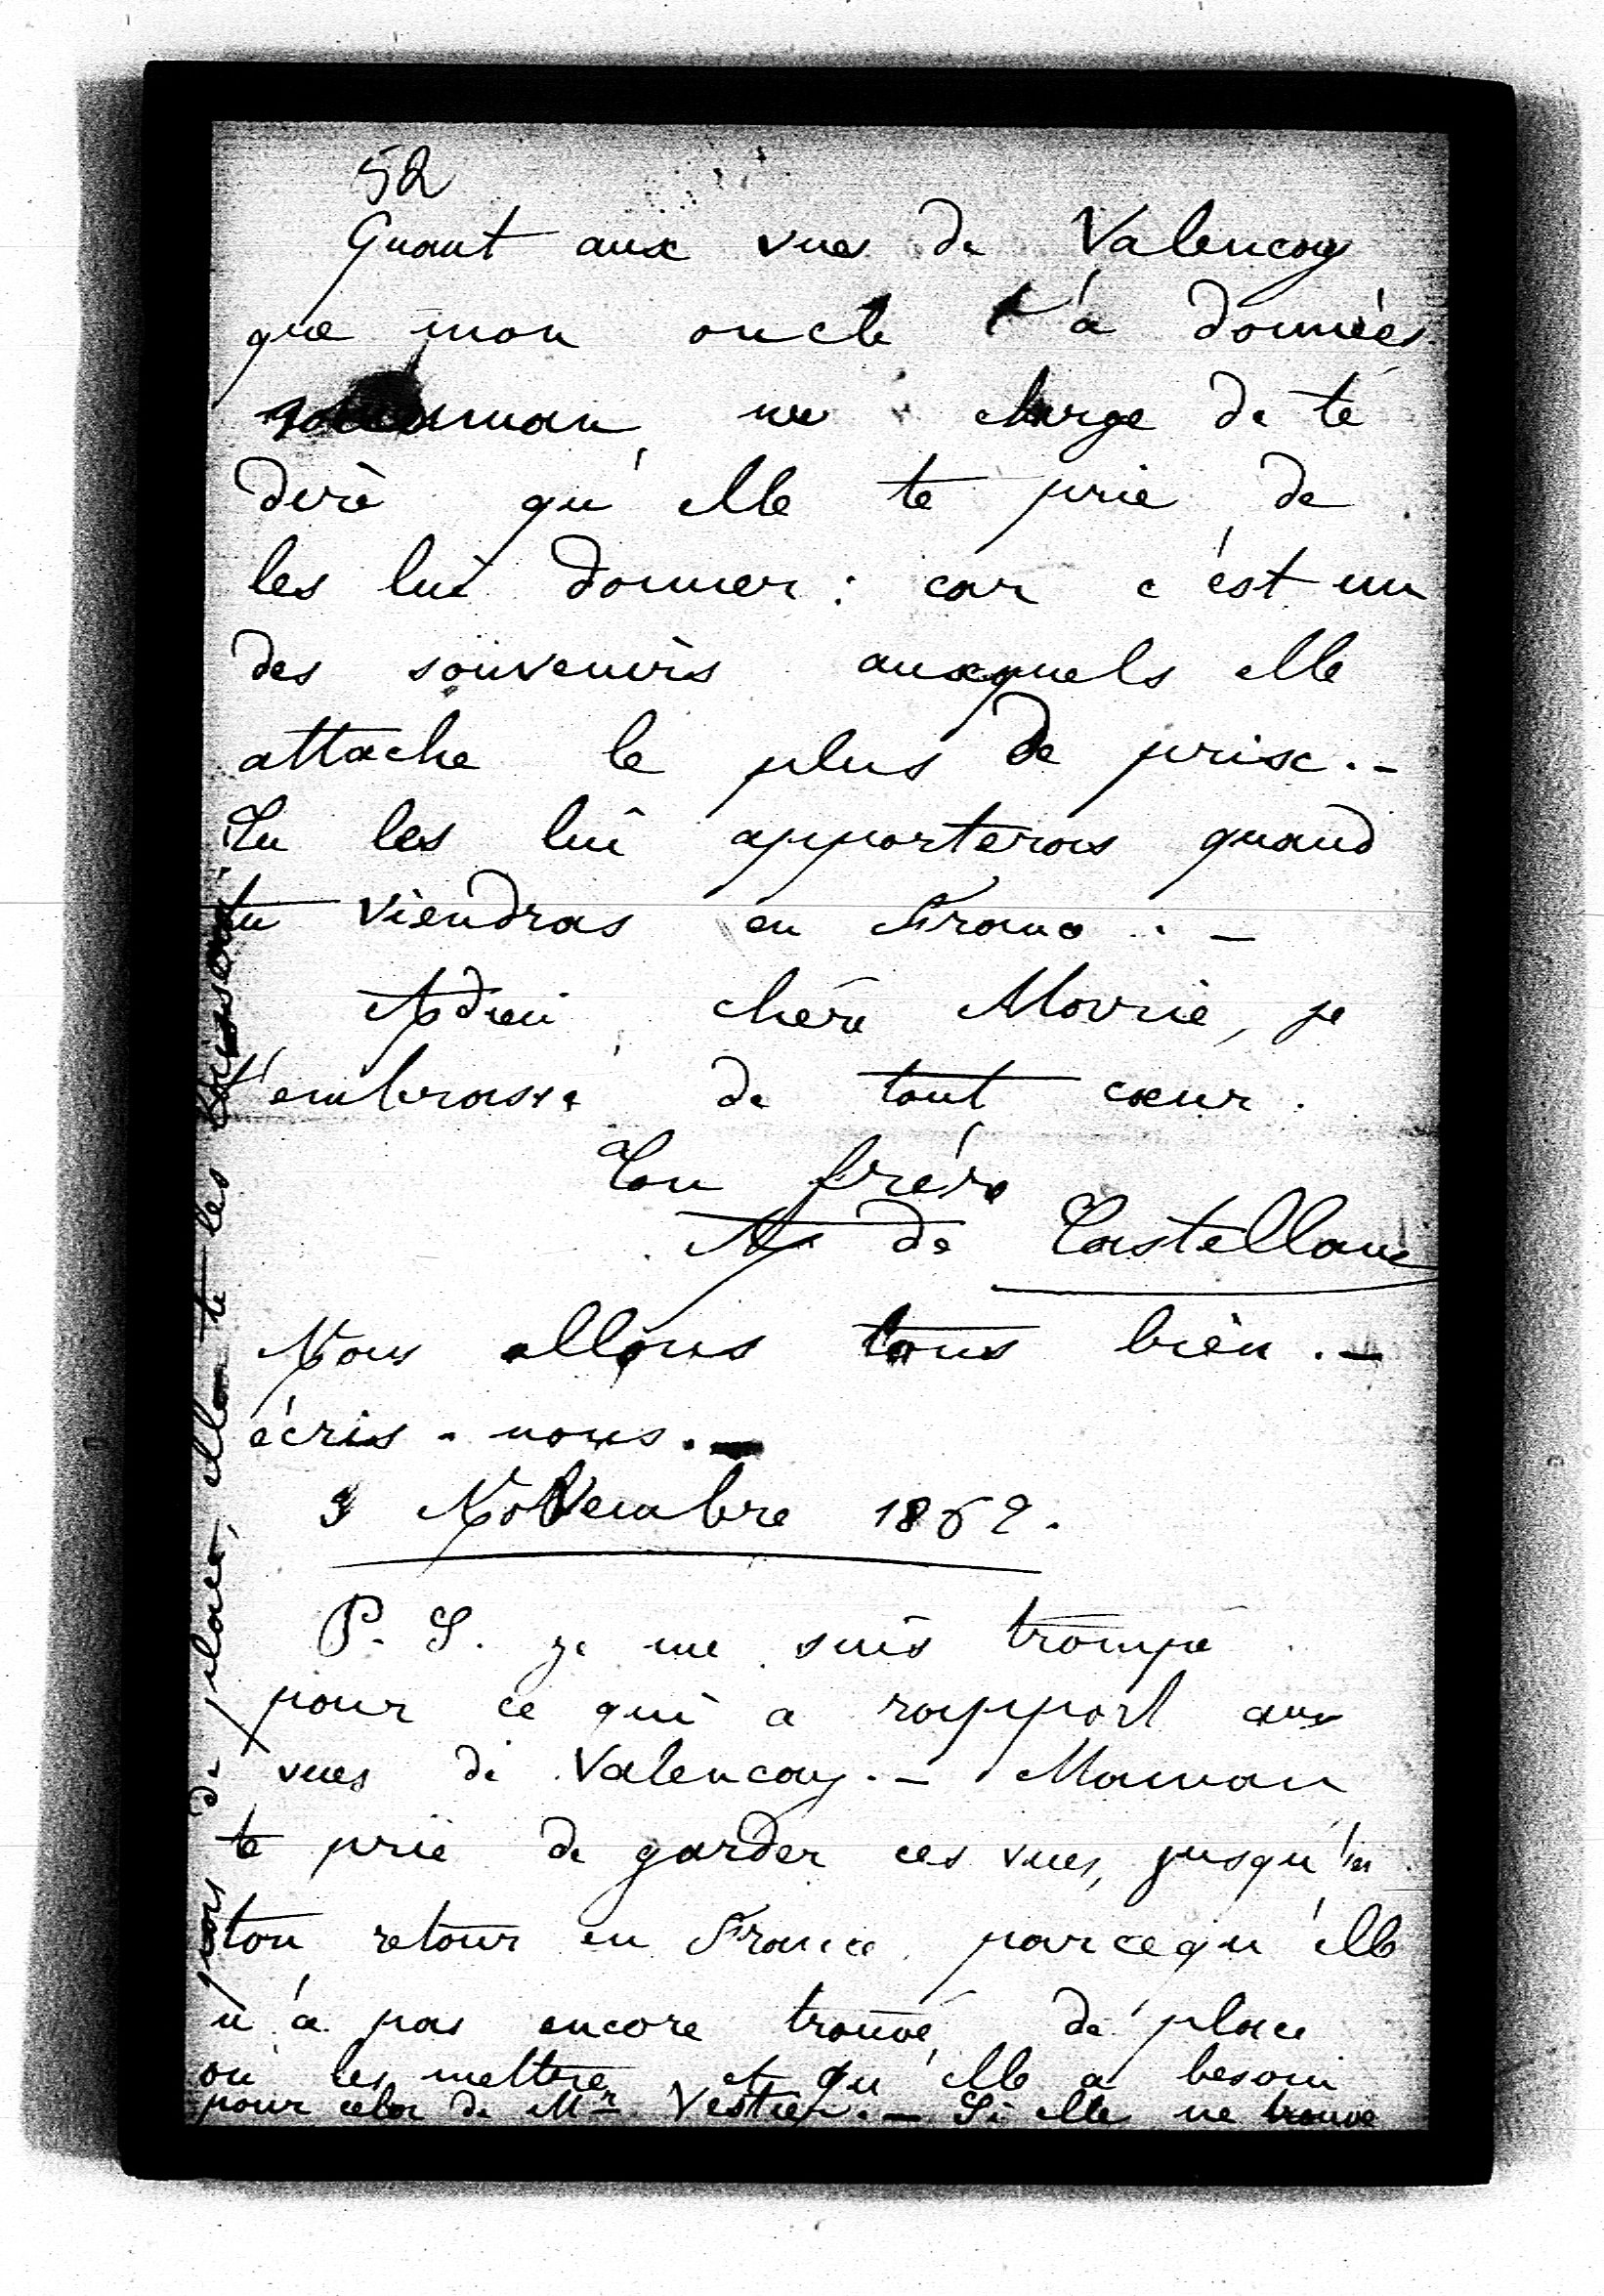 52
Quant aux vues de Valencay
que mon oncle t'a données
maman, me charge de te
dire qu'elle te prie de
les lui donner : car c'est un
des souvenirs auxquels elle
attache le plus de prix. -
Tu les lui apporteras quand
tu viendras en France . -
Adieu, chère Marie, je
t'embrasse de tout cœur.
Ton frère
A de Castellane
Nous allons tous bien. -
écris-nous. -
3 Novembre 1862.
P. S. je me suis trompé
pour ce qui a rapport aux
vues de Valencay. - Maman
te prie de garder ces vues, jusqu'à
ton retour en France, parcequ'elle
n'a pas encore trouvé de place
où les mettre, et qu'elle a besoin
pour cela de Mr Vestier. - Si elle ne trouve
pas de place, elle te les laissera.